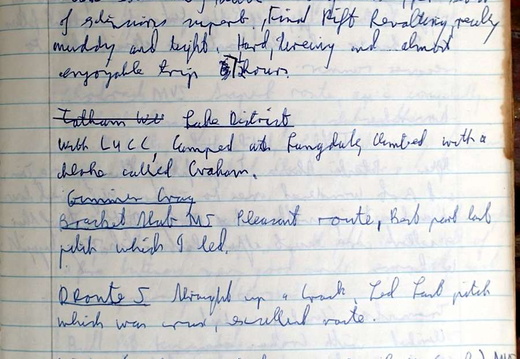 of extensions superb, Final Rift Revolting, really
muddy and tight. Hard, tireing and almost
enjoyable trip 7 hours.
Lake District
with LUCC, Camped at Langdale, climbed with a
bloke called Graham.
Gimmer Crag
Bracket Slab MS Pleasant route, Best part last
pitch which I led.
D Route S Straight up a Crack, Led last pitch
which was crux, excellent route.